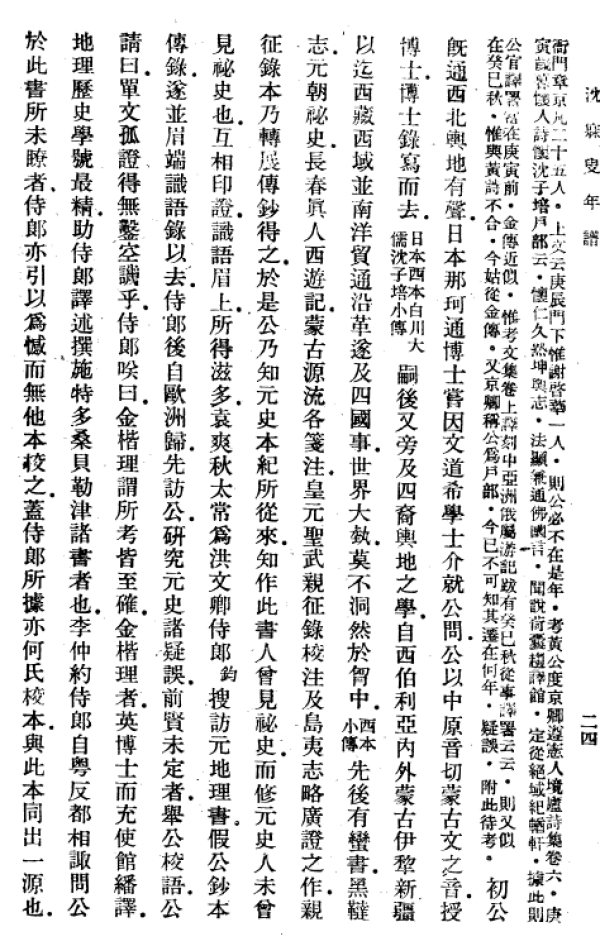 沈寐叟年譜
二四
衙門章京凡二十五人。上文云庚辰門下惟謝啓華一人。則公必不在是年。考黃公度京卿遵憲人境廬詩集卷六。庚
寅歲暮懷人詩懷沈子培戶部云。懷仁久熟坤輿志。法顯兼通佛國言。聞說荷囊趨譯館。定從絕域紀輶軒。據此則
公官譯署當在庚寅前。金傳近似。惟考文集卷上譯刻中亞洲俄屬游記跋有癸巳秋從事譯署云云。則又似
在癸巳秋。惟與黃詩不合。今姑從金傳。又京卿稱公爲戶部。今已不可知其遷在何年。疑誤。附此待考。初公
既通西北輿地有聲日本那珂通博士嘗因文道希學士介就公問公以中原音切蒙古文之音授
博士博士錄寫而去日本西本白川大儒沈子培小傳嗣後又旁及四裔輿地之學自西伯利亞內外蒙古伊犂新疆
以迄西藏西域並南洋貿通沿革遂及四國事世界大埶莫不洞然於胷中西本小傳先後有蠻書黑韃
志元朝祕史長春眞人西遊記蒙古源流各箋注皇元聖武親征錄校注及島夷志略廣證之作親
征錄本乃轉展傳鈔得之於是公乃知元史本紀所從來知作此書人曾見祕史而修元史人未曾
見祕史也互相印證識語眉上所得滋多袁爽秋太常爲洪文卿侍郎鈞搜訪元地理書假公鈔本
傳錄遂並眉端識語錄以去侍郎後自歐洲歸先訪公研究元史諸疑誤前賢未定者舉公校語公
請曰單文孤證得無鑿空譏乎侍郎唉曰金楷理謂所考皆至確金楷理者英博士而充使館繙譯
地理歷史學號最精助侍郎譯述撰施特多桑貝勒津諸書者也李仲約侍郎自粵反都相諏問公
於此書所未瞭者侍郎亦引以爲憾而無他本校之蓋侍郎所據亦何氏校本與此本同出一源也